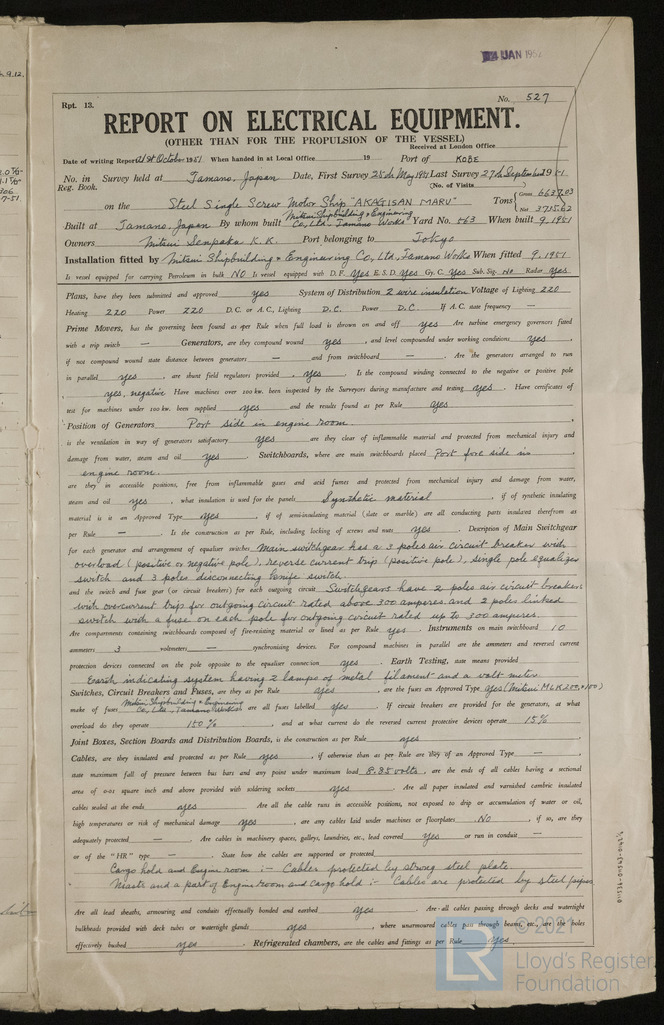 JAN 1952
Rpt. 13.
No. 527
REPORT ON ELECTRICAL EQUIPMENT.
(OTHER THAN FOR THE PROPULSION OF THE VESSEL)
Received at London Office
Date of writing Report 31st October 1951 When handed in at Local Office 19 Port of KOBE
No. in Survey held at Tamano, Japan Date, First Survey 25th May 1951 Last Survey 27th September 1951
Reg. Book. (No. of Visits
on the Steel Single Screw Motor Ship "AKAGISAN MARU" Tons { Gross 6637.03
Net 3715.62
Built at Tamano, Japan By whom built Mitsui Shipbuilding & Engineering Co, Ltd, Tamano Works Yard No. 563 When built 9, 1951
Owners Mitsui Senpaku K.K. Port belonging to Tokyo
Installation fitted by Mitsui Shipbuilding & Engineering Co, Ltd, Tamano Works When fitted 9, 1951
Is vessel equipped for carrying Petroleum in bulk NO Is vessel equipped with D.F. Yes E.S.D. Yes Gy. C. Yes Sub. Sig. No Radar Yes
Plans, have they been submitted and approved yes System of Distribution 2 wire insulation Voltage of Lighting 220
Heating 220 Power 220 D.C. or A.C., Lighting D.C. Power D.C. If A.C. state frequency —
Prime Movers, has the governing been found as per Rule when full load is thrown on and off yes Are turbine emergency governors fitted
with a trip switch — Generators, are they compound wound yes, and level compounded under working conditions yes,
if not compound wound state distance between generators — and from switchboard — . Are the generators arranged to run
in parallel yes, are shunt field regulators provided yes. Is the compound winding connected to the negative or positive pole
yes, negative Have machines over 100 kw. been inspected by the Surveyors during manufacture and testing yes. Have certificates of
test for machines under 100 kw. been supplied yes and the results found as per Rule yes
Position of Generators Port side in engine room.
is the ventilation in way of generators satisfactory yes are they clear of inflammable material and protected from mechanical injury and
damage from water, steam and oil yes. Switchboards, where are main switchboards placed Port fore side in
engine room.
are they in accessible positions, free from inflammable gases and acid fumes and protected from mechanical injury and damage from water,
steam and oil yes, what insulation is used for the panels Synthetic material, if of synthetic insulating
material is it an Approved Type yes, if of semi-insulating material (slate or marble) are all conducting parts insulated therefrom as
per Rule — . Is the construction as per Rule, including locking of screws and nuts yes. Description of Main Switchgear
for each generator and arrangement of equaliser switches Main switchgear has a 3 poles air circuit breaker with
overload (positive or negative pole), reverse current trip (positive pole), single pole equalizer
switch and 3 poles disconnecting knife switch.
and the switch and fuse gear (or circuit breakers) for each outgoing circuit Switchgears have 2 poles air circuit breakers
with overcurrent trip for outgoing circuit rated above 300 amperes and 2 poles linked
switch with a fuse on each pole for outgoing circuit rated up to 300 amperes
Are compartments containing switchboards composed of fire-resisting material or lined as per Rule yes. Instruments on main switchboard 10
ammeters 3 voltmeters — synchronising devices. For compound machines in parallel are the ammeters and reversed current
protection devices connected on the pole opposite to the equaliser connection yes. Earth Testing, state means provided
Earth indicating system having 2 lamps of metal filament and a volt meter.
Switches, Circuit Breakers and Fuses, are they as per Rule yes, are the fuses an Approved Type yes
make of fuses Mitsui Shipbuilding & Engineering Co, Ltd, Tamano Works are all fuses labelled yes. If circuit breakers are provided for the generators, at what
overload do they operate 150%, and at what current do the reversed current protective devices operate 15%
Joint Boxes, Section Boards and Distribution Boards, is the construction as per Rule yes
Cables, are they insulated and protected as per Rule yes, if otherwise than as per Rule are they of an Approved Type —,
state maximum fall of pressure between bus bars and any point under maximum load 8.35 volts, are the ends of all cables having a sectional
area of 0.01 square inch and above provided with soldering sockets yes. Are all paper insulated and varnished cambric insulated
cables sealed at the ends yes Are all the cable runs in accessible positions, not exposed to drip or accumulation of water or oil,
high temperatures or risk of mechanical damage yes, are any cables laid under machines or floorplates NO, if so, are they
adequately protected — . Are cables in machinery spaces, galleys, laundries, etc., lead covered yes or run in conduit —
or of the "HR" type — . State how the cables are supported or protected
Cargo hold and Engine room :- Cables protected by strong steel plate.
Masts and a part of Engine room and Cargo hold :- Cables are protected by steel pipes
Are all lead sheaths, armouring and conduits effectually bonded and earthed yes Are all cables passing through decks and watertight
bulkheads provided with deck tubes or watertight glands yes, where unarmoured cables pass through beams, etc., are the holes
effectively bushed yes. Refrigerated chambers, are the cables and fittings as per Rule yes
© 2021
LR
Lloyd's Register
Foundation